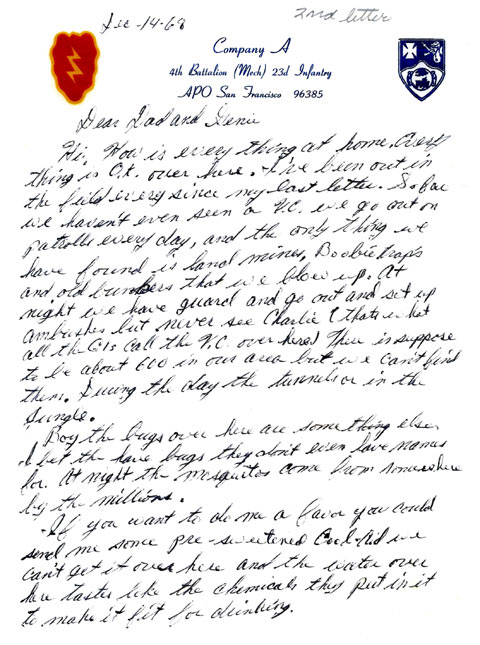 Dec-14-68
2nd letter
Company A
4th Battalion (Mech) 23d Infantry
APO San Francisco 96385
Dear Dad and Genie
Hi, How is every thing at home. Every
thing is O.K. over here. I've been out in
the field every since my last letter. So far
we haven't even seen a V.C. we go out on
patrolls every day, and the only thing we
have found is land mines, Boobie traps
and old bunkers that we blow up. At
night we have guard and go out and set up
ambushes but never see Charlie (thats what
all the GIs call the V.C. over here) Ther is suppose
to be about 600 in our area but we can't find
them. During the day the tunnels or in the
Jungle.
Boy the bugs over here are something else.
I bet the have bugs they don't even have names
for. At night the mesquitos come from somewhere
by the millions.
If you want to do me a favor you could
send me some pre-sweetened Cool-Aid we
can't get it over here and the water over
here tastes like the chemicals they put in it
to make it fit for drinking.